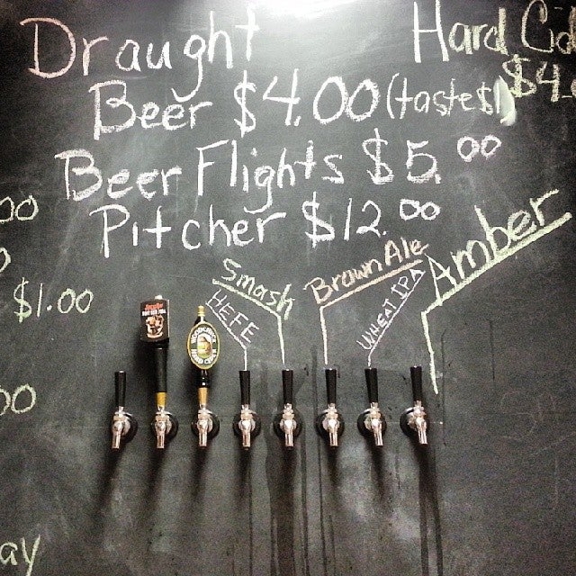 Draught
Hard
Beer $4.00 (taste $1)
Beer Flights $5.00
Pitcher $12.00
00
$1.00
00
ay
Smash
HEFE
Brown Ale
WHEAT IPA
Amber